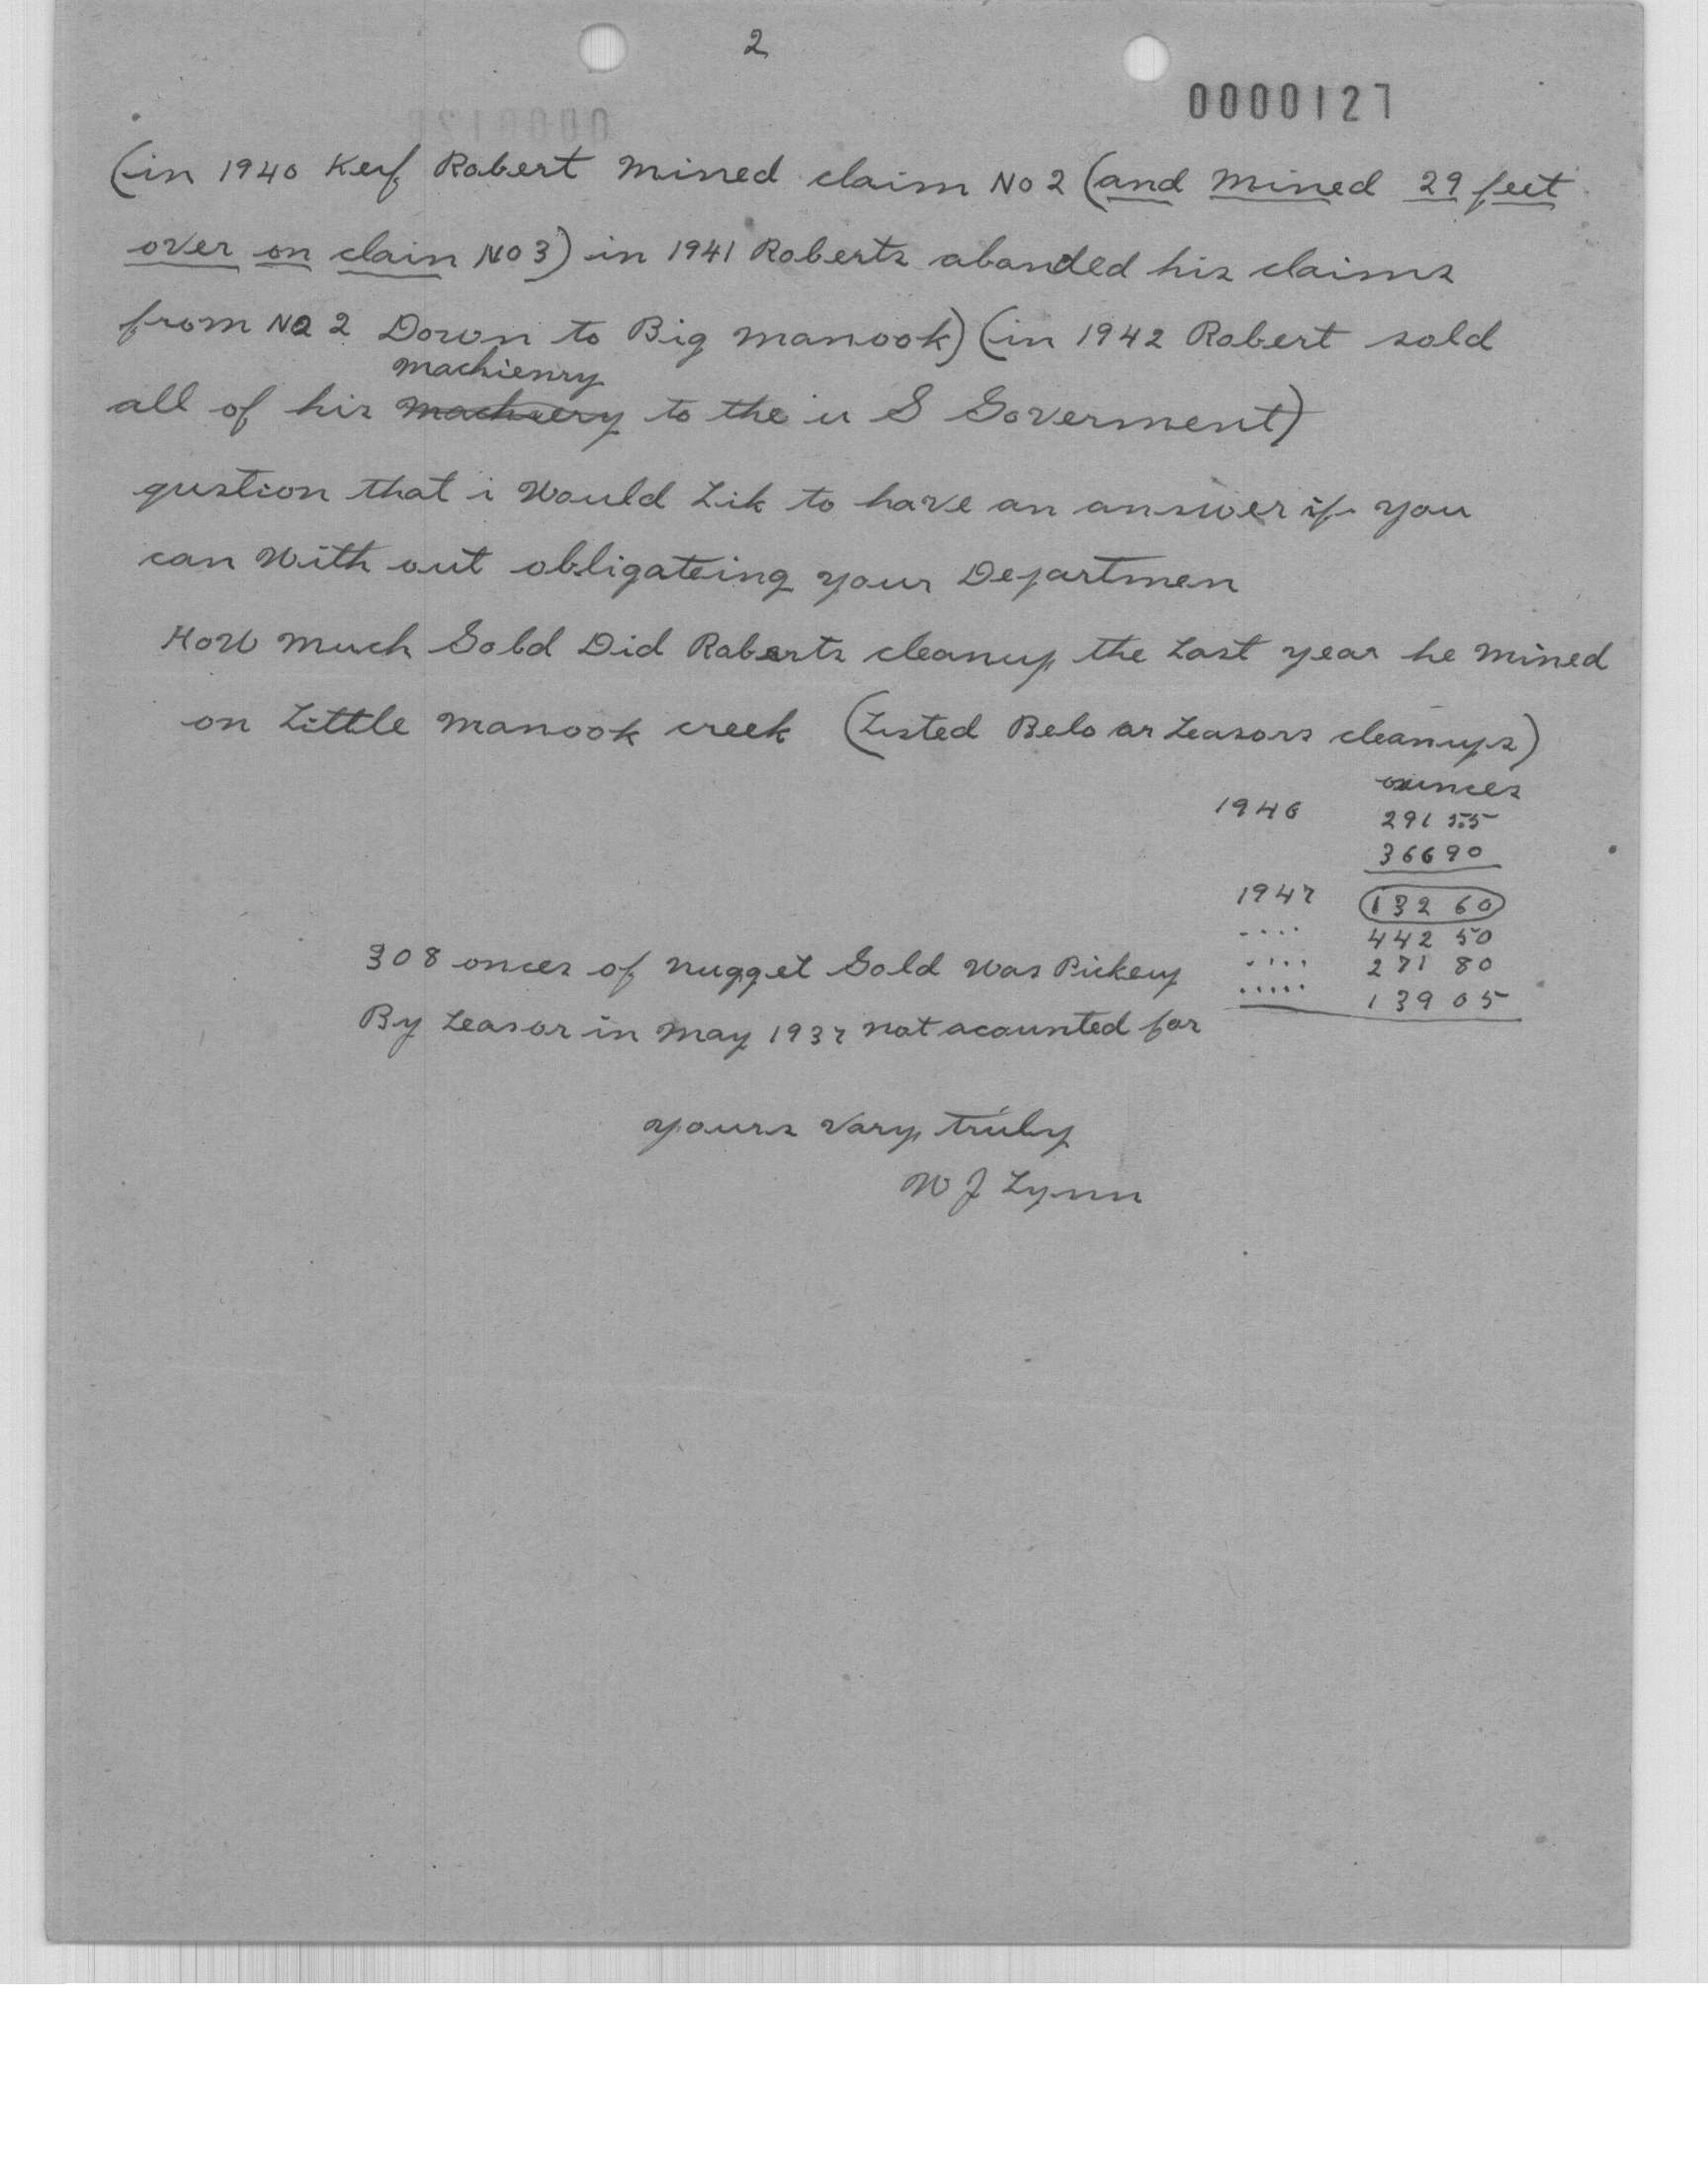 2
0000127
(in 1940 Keuf Robert mined claim No 2 (and mined 29 feet
over on claim No 3) in 1941 Roberts abanded his claims
from No 2 Down to Big manook) (in 1942 Robert sold
machienry
all of his to the u S Goverment)
qustion that i Would Lik to have an answer if you
can With out obligateing your Departmen
How much Gold Did Roberts cleanup the Last year he mined
on Little manook creek (Listed Belo ar Leasors cleanups)
ounces
1946 291 55
366 90
1947 132 60
.... 442 50
.... 271 80
..... 139 05
308 onces of nugget Gold Was Pickeup
By Leasor in may 1937 not acounted for
yours vary truly
W J Lynn